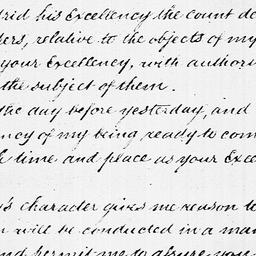 rid his Excellency the count de
pers, relative to the objects of my
your Excellency, with authori
the subject of them.
the day before yesterday, and
ncy of my being ready to com
h time and place as your Exce
y's character gives me reason t
n will be conducted in a man
nd permit me to assure you